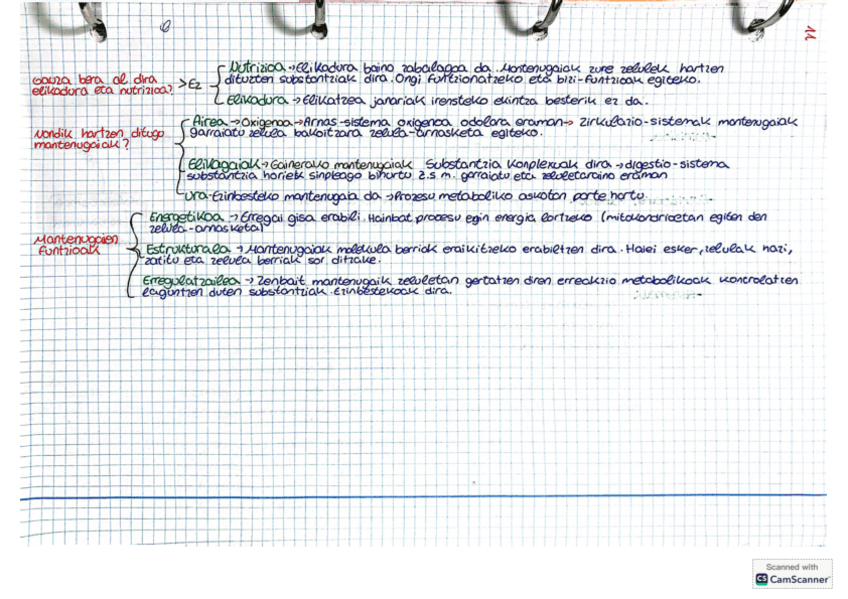 11
Gauza bera al dira
elikadura eta nutrizioa? > Ez
Nutrizioa → Elikadura baino zabalagoa da. Mantenugaiak zure zelulek hartzen
dituzten substantziak dira. Ongi funtzionatzeko eta bizi-funtzioak egiteko.
Elikadura → Elikatzea janariak irensteko ekintza besterik ez da.
Nondik hartzen ditugo
mantenugaiak?
Airea → Oxigenoa → Arnas-sistema oxigenoa odolara eraman → Zirkulazio-sistemak mantenugaiak
garraiatu zelula bakoitzara zelula-arnasketa egiteko.
Elikagaiak → Gainerako mantenugaiak Substantzia konplexuak dira → digestio-sistema
substantzia horiek sinpleago bihurtu z.s. m. garraiatu eta zeluletaraino eraman
Ura - Ezinbesteko mantenugaia da → Prozesu metaboliko askotan parte hartu.
Mantenugaien
funtzioak
Energetikoa → Erregai gisa erabili. Hainbat prozesu egin energia lortzeko (mitokondrioetan egiten den
zelula-arnasketa)
Estrukturala → Mantenugaiak molekula berriak eraikitzeko erabiltzen dira. Haiei esker, zelulak hazi,
zatitu eta zelula berriak sor ditzake.
Erregulatzailea → Zenbait mantenugaik zeluletan gertatzen diren erreakzio metabolikoak kontrolatzen
laguntzen duten substantziak. Ezinbestekoak dira.
Scanned with
CS CamScanner